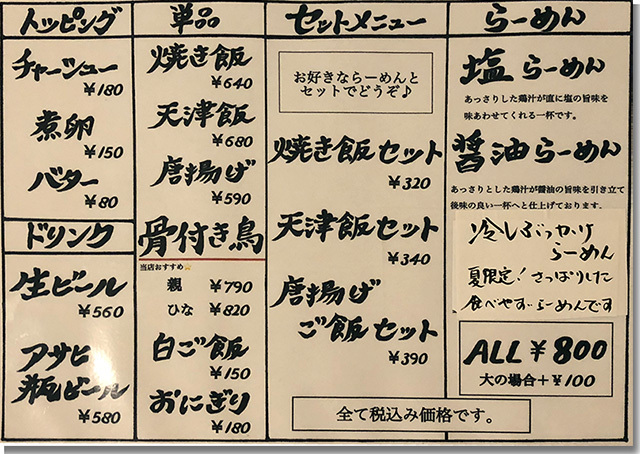 トッピング
チャーシュー
¥180
煮卵
¥150
バター
¥80
ドリンク
生ビール
¥560
アサヒ
瓶ビール
¥580
単品
焼き飯
¥640
天津飯
¥680
唐揚げ
¥590
骨付き鳥
当店おすすめ⭐
親 ¥790
ひな ¥820
白ご飯
¥150
おにぎり
¥180
セットメニュー
お好きならーめんと
セットでどうぞ♪
焼き飯セット
¥320
天津飯セット
¥340
唐揚げ
ご飯セット
¥390
らーめん
塩らーめん
あっさりした鶏汁が直に塩の旨味を
味あわせてくれる一杯です。
醤油らーめん
あっさりとした鶏汁が醤油の旨味を引き立て
後味の良い一杯へと仕上げております。
冷しぶっかけ
らーめん
夏限定!さっぱりした
食べやすいらーめんです
ALL ¥800
大の場合+¥100
全て税込み価格です。